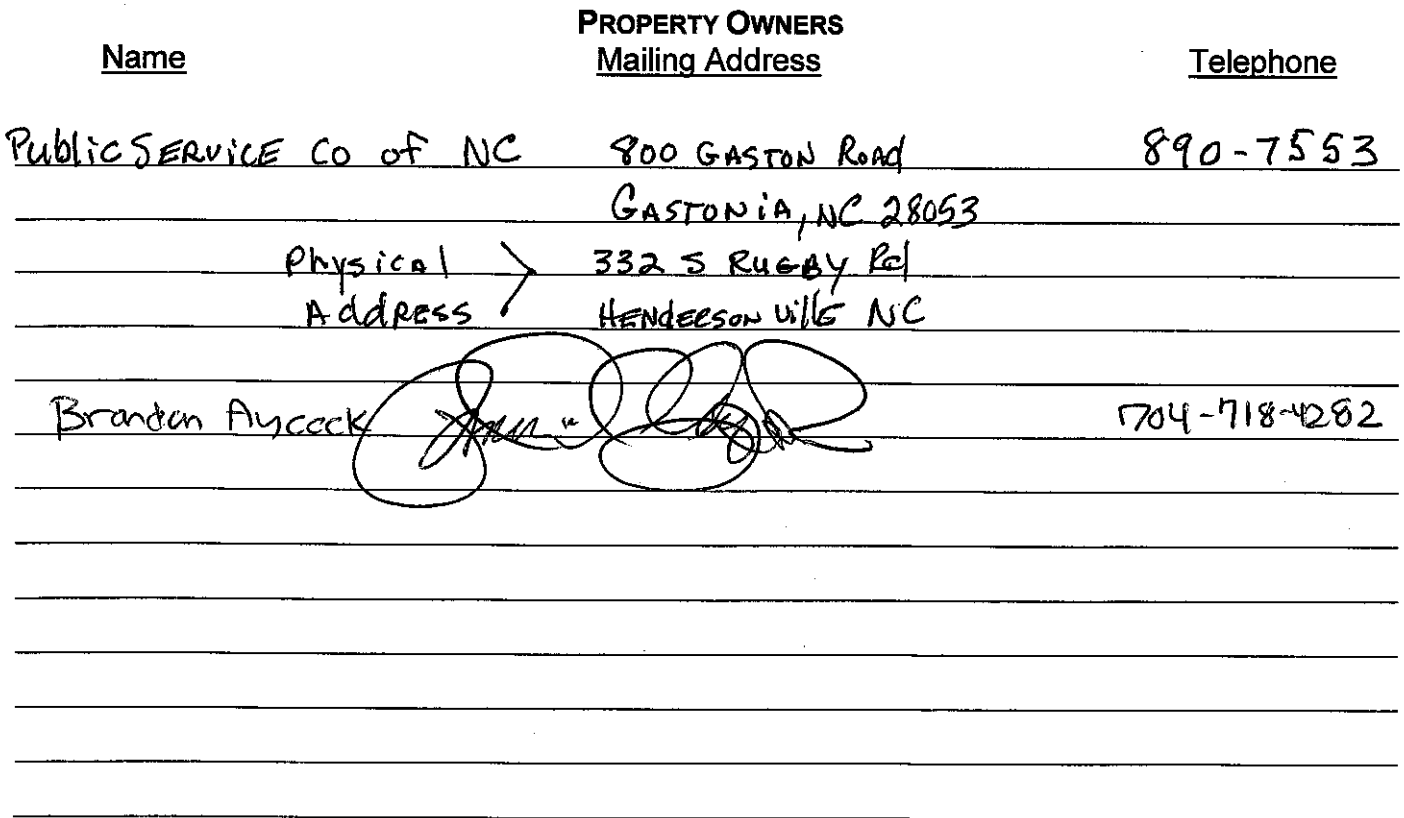 PROPERTY OWNERS
Name Mailing Address Telephone
Public SERVICE Co of NC 800 GASTON ROAD 890-7553
GASTONIA, NC 28053
Physical > 332 S RUGBY Rd
Address HENDERSONVILLE NC
Brandon Aycock 704-718-4282